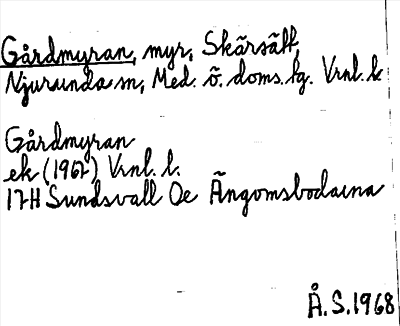 Gårdmyran, myr, Skärsätt,
Njurunda sn, Med. ö. doms. tg. Vrnl. l.
Gårdmyran
ek (1967) Vrnl. l.
17H Sundsvall Oe Ängomsbodarna
Å.S. 1968